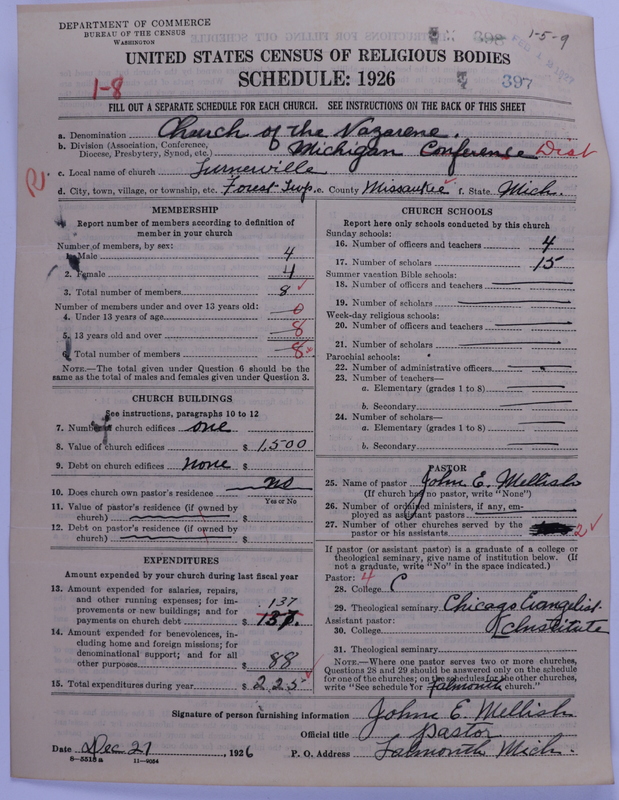 DEPARTMENT OF COMMERCE
BUREAU OF THE CENSUS
WASHINGTON
398
1-5-9
UNITED STATES CENSUS OF RELIGIOUS BODIES
SCHEDULE: 1926
397
1-8
FILL OUT A SEPARATE SCHEDULE FOR EACH CHURCH. SEE INSTRUCTIONS ON THE BACK OF THIS SHEET
a. Denomination Church of the Nazarene.
b. Division (Association, Conference, Diocese, Presbytery, Synod, etc.) Michigan Conference Dist
c. Local name of church Turnerville
d. City, town, village, or township, etc. Forest Twp. e. County Missaukee f. State Mich.
MEMBERSHIP
Report number of members according to definition of
member in your church
Number of members, by sex:
1. Male 4
2. Female 4
3. Total number of members 8
Number of members under and over 13 years old:
4. Under 13 years of age 0
5. 13 years old and over 8
6. Total number of members 8
NOTE.—The total given under Question 6 should be the
same as the total of males and females given under Question 3.
CHURCH BUILDINGS
See instructions, paragraphs 10 to 12
7. Number of church edifices one
8. Value of church edifices $ 1,500
9. Debt on church edifices none $
10. Does church own pastor's residence no
Yes or No
11. Value of pastor's residence (if owned by
church) $
12. Debt on pastor's residence (if owned by
church) $
EXPENDITURES
Amount expended by your church during last fiscal year
13. Amount expended for salaries, repairs,
and other running expenses; for im-
provements or new buildings; and for
payments on church debt $ 137
137.
14. Amount expended for benevolences, in-
cluding home and foreign missions; for
denominational support; and for all
other purposes $ 88
15. Total expenditures during year $ 225
CHURCH SCHOOLS
Report here only schools conducted by this church
Sunday schools:
16. Number of officers and teachers 4
17. Number of scholars 15
Summer vacation Bible schools:
18. Number of officers and teachers
19. Number of scholars
Week-day religious schools:
20. Number of officers and teachers
21. Number of scholars
Parochial schools:
22. Number of administrative officers
23. Number of teachers—
a. Elementary (grades 1 to 8)
b. Secondary
24. Number of scholars—
a. Elementary (grades 1 to 8)
b. Secondary
PASTOR
25. Name of pastor John E. Mellish
(If church has no pastor, write "None")
26. Number of ordained ministers, if any, em-
ployed as assistant pastors
27. Number of other churches served by the
pastor or his assistants 2
If pastor (or assistant pastor) is a graduate of a college or
theological seminary, give name of institution below. (If
not a graduate, write "No" in the space indicated.)
Pastor: 4
28. College
29. Theological seminary Chicago Evangelist-
Assistant pastor: Institute
30. College
31. Theological seminary
NOTE.—Where one pastor serves two or more churches,
Questions 28 and 29 should be answered only on the schedule
for one of the churches; on the schedules for the other churches,
write "See schedule for Falmouth church."
Signature of person furnishing information John E. Mellish
Official title pastor
Date Dec 27, 1926 P. O. Address Falmouth Mich.
8-5518a 11-9064